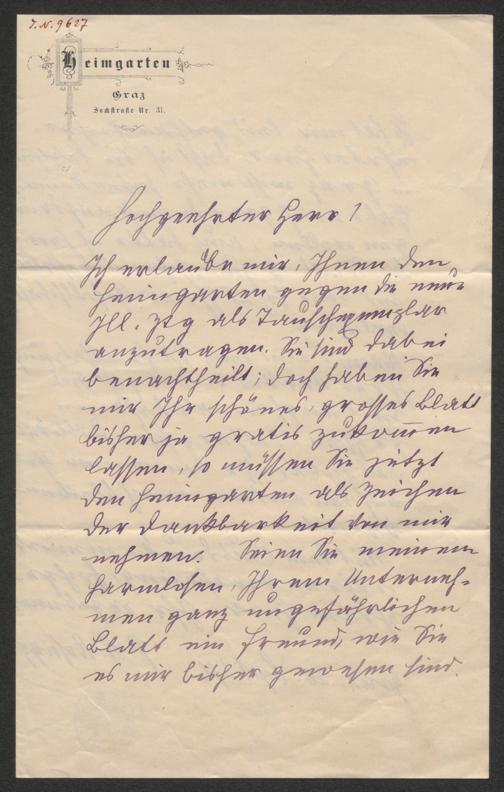 J. N. 9627
Heimgarten
Graz
Sackstraße Nr. 31.
Hochgeehrter Herr!
Ich erlaube mir, Ihnen den
Heimgarten gegen die neue
Ill. Ztg als Tauschexemplar
anzutragen. Sie sind dabei
benachtheilt; doch haben Sie
mir Ihr schönes, grosses Blatt
bisher ja gratis zukom̅en
lassen, so müssen Sie jetzt
den Heimgarten als Zeichen
der Dankbarkeit von mir
nehmen. Seien Sie meinem
harmlosen, Ihrem Unterneh-
men ganz ungefährlichen
Blatt ein Freund, wie Sie
es mir bisher gewesen sind.